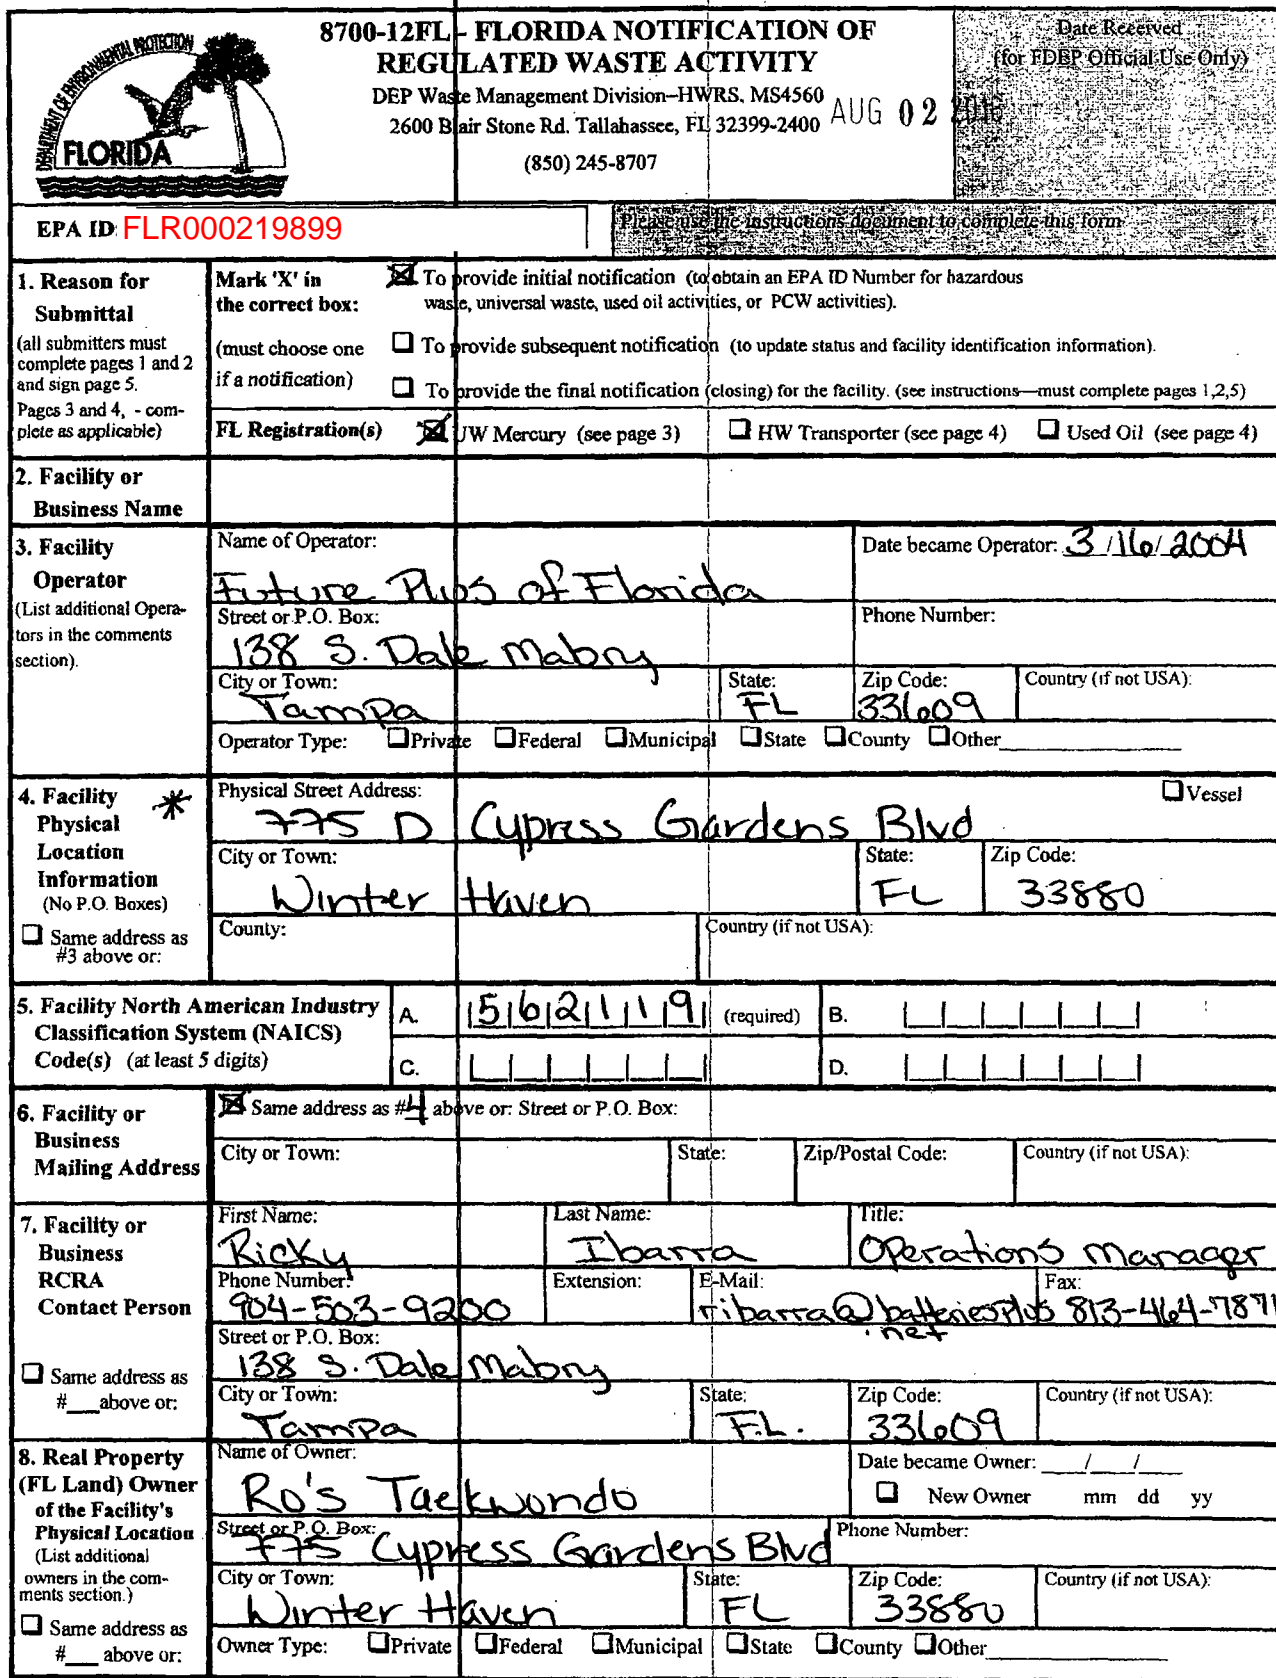 8700-12FL - FLORIDA NOTIFICATION OF
REGULATED WASTE ACTIVITY
DEP Waste Management Division–HWRS, MS4560
2600 Blair Stone Rd. Tallahassee, FL 32399-2400
(850) 245-8707
DEPARTMENT OF ENVIRONMENTAL PROTECTION
FLORIDA
Date Received
(for FDEP Official Use Only)
AUG 02 2016
EPA ID: FLR000219899
Please use the instructions document to complete this form
1. Reason for
Submittal
(all submitters must
complete pages 1 and 2
and sign page 5.
Pages 3 and 4, - com-
plete as applicable)
Mark 'X' in
the correct box:
(must choose one
if a notification)
To provide initial notification (to obtain an EPA ID Number for hazardous
waste, universal waste, used oil activities, or PCW activities).
To provide subsequent notification (to update status and facility identification information).
To provide the final notification (closing) for the facility. (see instructions—must complete pages 1,2,5)
FL Registration(s) UW Mercury (see page 3) HW Transporter (see page 4) Used Oil (see page 4)
2. Facility or
Business Name
3. Facility
Operator
(List additional Opera-
tors in the comments
section).
Name of Operator:
Future Plus of Florida
Date became Operator: 3/16/2004
Street or P.O. Box:
138 S. Dale Mabry
Phone Number:
City or Town:
Tampa
State:
FL
Zip Code:
33609
Country (if not USA):
Operator Type: Private Federal Municipal State County Other
4. Facility *
Physical
Location
Information
(No P.O. Boxes)
Same address as
#3 above or:
Physical Street Address:
775 D Cypress Gardens Blvd
Vessel
City or Town:
Winter Haven
State:
FL
Zip Code:
33880
County:
Country (if not USA):
5. Facility North American Industry
Classification System (NAICS)
Code(s) (at least 5 digits)
A. 562119 (required)
B.
C.
D.
6. Facility or
Business
Mailing Address
Same address as #4 above or: Street or P.O. Box:
City or Town:
State:
Zip/Postal Code:
Country (if not USA):
7. Facility or
Business
RCRA
Contact Person
Same address as
#___above or:
First Name:
Ricky
Last Name:
Ibarra
Title:
Operations Manager
Phone Number:
904-503-9200
Extension:
E-Mail:
ribarra@batteriesplus
.net
Fax:
813-464-7871
Street or P.O. Box:
138 S. Dale Mabry
City or Town:
Tampa
State:
F.L.
Zip Code:
33609
Country (if not USA):
8. Real Property
(FL Land) Owner
of the Facility's
Physical Location
(List additional
owners in the com-
ments section.)
Same address as
#___ above or:
Name of Owner:
Ro's Taekwondo
Date became Owner: ___/___/___
New Owner mm dd yy
Street or P.O. Box:
775 Cypress Gardens Blvd
Phone Number:
City or Town:
Winter Haven
State:
FL
Zip Code:
33880
Country (if not USA):
Owner Type: Private Federal Municipal State County Other